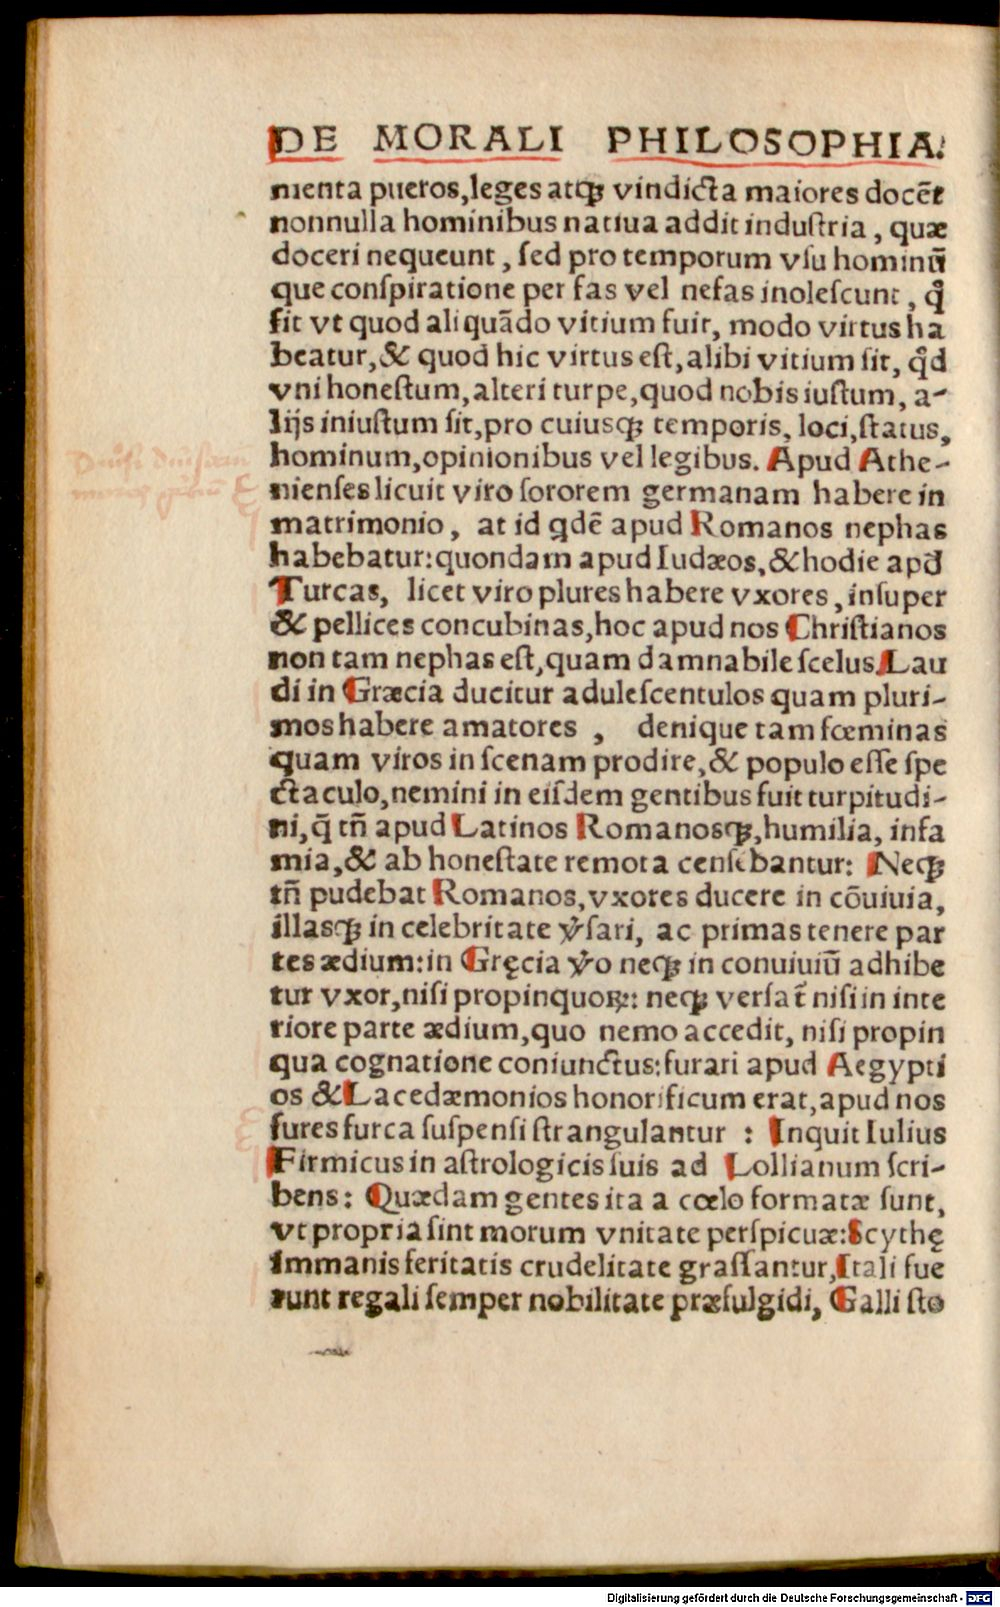 DE MORALI PHILOSOPHIA.
menta pueros,leges atqꝫ vindicta maiores docẽt
nonnulla hominibus natiua addit industria , quæ
doceri nequeunt , sed pro temporum vſu hominũ
que conſpiratione per fas vel nefas inoleſcunt , q̊
fit vt quod aliquãdo vitium fuit, modo virtus ha
beatur,& quod hic virtus eſt,alibi vitium ſit, q̊d
vni honeſtum,alteri turpe,quod nobis iuſtum, a-
lijs iniuſtum ſit,pro cuiusqꝫ temporis, loci,ſtatus,
hominum,opinionibus vel legibus. Apud Athe-
nienſes licuit viro ſororem germanam habere in
matrimonio, at id qdẽ apud Romanos nephas
habebatur:quondam apud Iudæos,&hodie apđ
Turcas, licet viro plures habere vxores,inſuper
& pellices concubinas,hoc apud nos Chriſtianos
non tam nephas eſt,quam damnabile ſcelus.Lau
di in Græcia ducitur aduleſcentulos quam pluri-
mos habere amatores , denique tam fœminas
quam viros in ſcenam prodire,& populo eſſe ſpe
ctaculo,nemini in eiſdem gentibus fuit turpitudi-
ni,q̃ tñ apud Latinos Romanosqꝫ,humilia, infa
mia,& ab honeſtate remota cenſebantur: Neqꝫ
tñ pudebat Romanos,vxores ducere in cõuiuia,
illasqꝫ in celebritate v̾ſari, ac primas tenere par
tes ædium:in Gręcia v̾o neqꝫ in conuiuiũ adhibe
tur vxor,niſi propinquoꝝ: neqꝫ verſat᷑ niſi in inte
riore parte ædium,quo nemo accedit, niſi propin
qua cognatione coniunctus:furari apud Aegypti
os &Lacedæmonios honorificum erat,apud nos
fures furca ſuſpenſi ſtrangulantur : Inquit Iulius
Firmicus in aſtrologicis ſuis ad Lollianum ſcri-
bens: Quædam gentes ita a cœlo formatæ ſunt,
vt propria ſint morum vnitate perſpicuæ:Scythę
immanis feritatis crudelitate graſſantur,Itali fue
runt regali ſemper nobilitate præfulgidi, Galli ſto
Digitalisierung gefördert durch die Deutsche Forschungsgemeinschaft - DFG